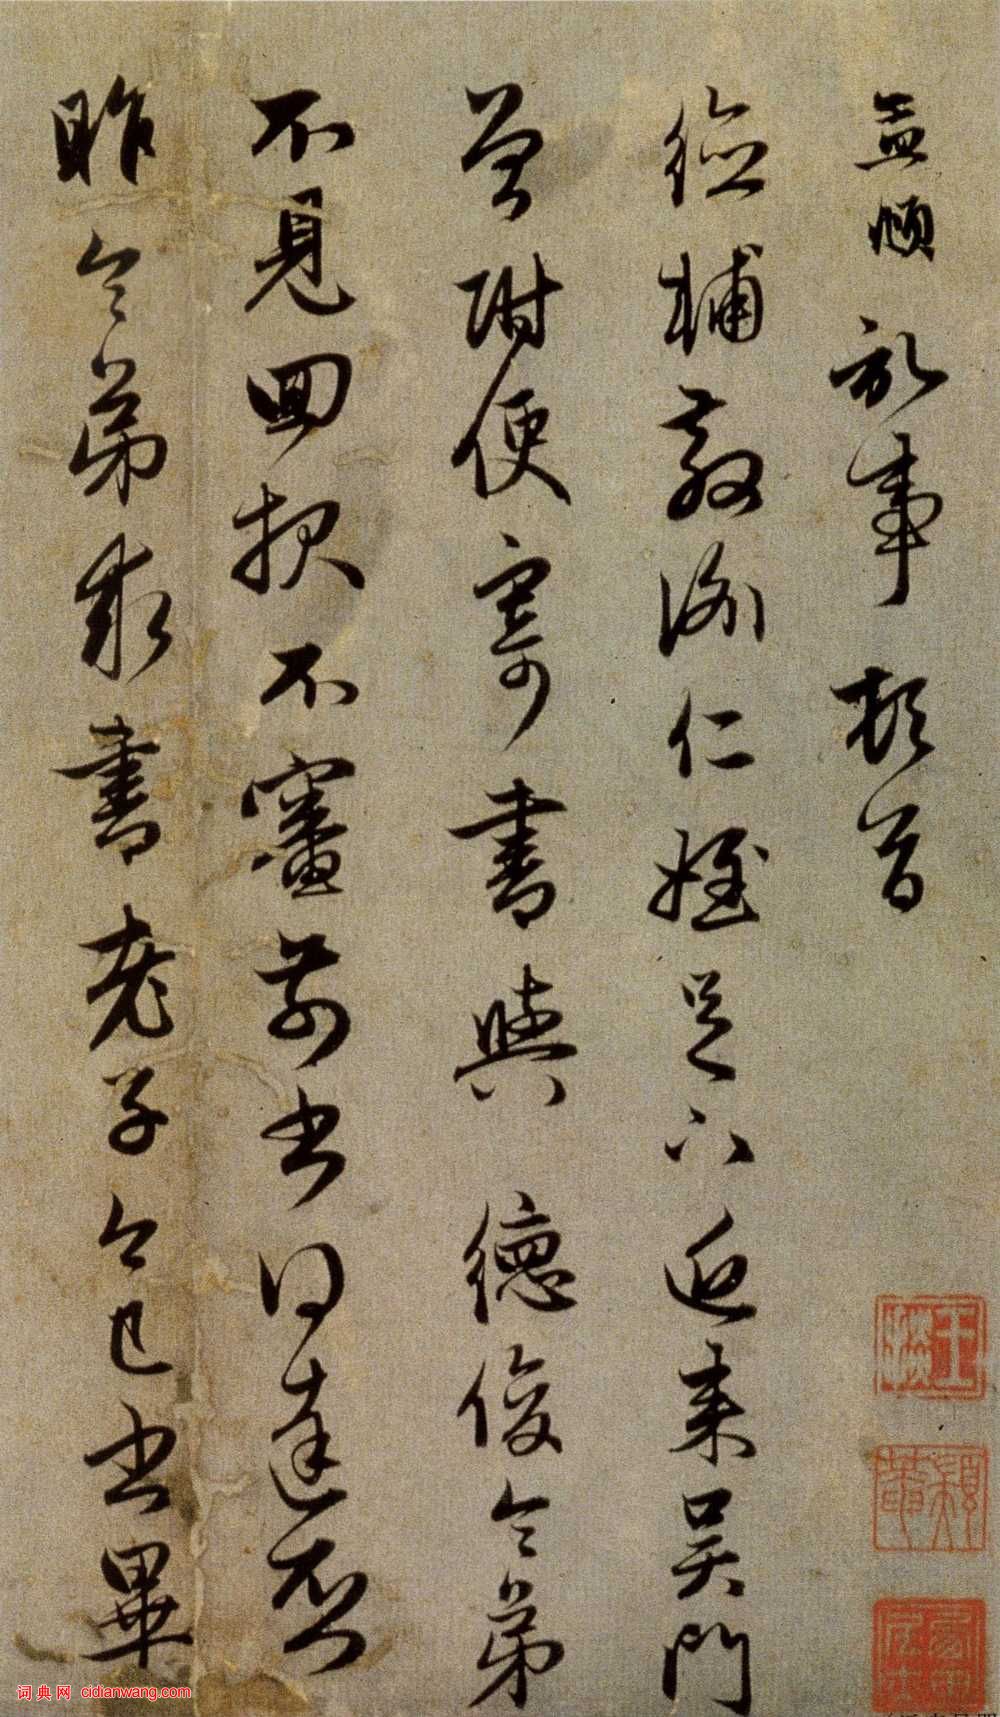 孟頫就事頓首
德輔教諭仁姪足下近来吴門
曾附便寄書與德俊令弟
不見回報不審前書得達否
昨令弟求書老子今已書畢
词典网 cidianwang.com